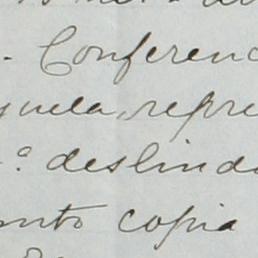 . Conferenc
yuela, repre
.ª deslinda
ento copia